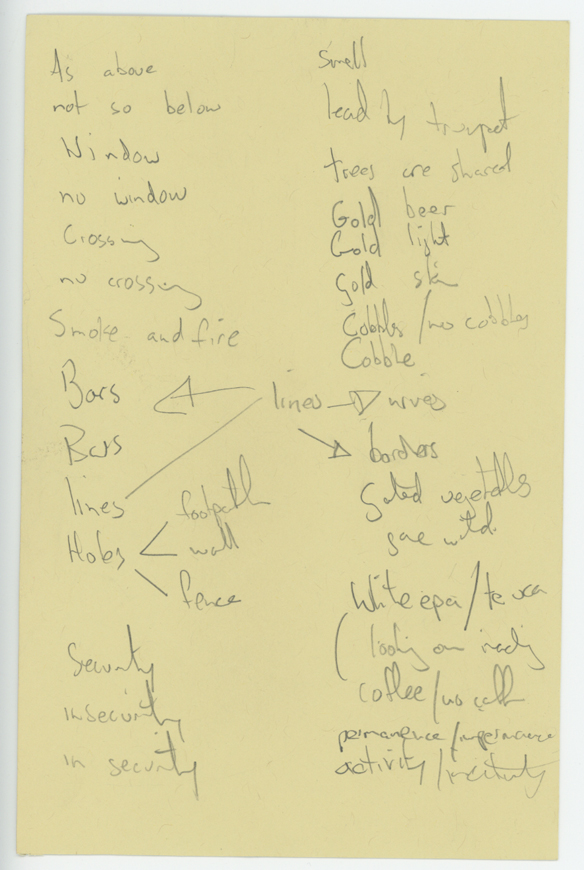 As above
not so below
Window
no window
Crossing
no crossing
Smoke and fire
Bars
Bars
lines
Holes
footpath
wall
fence
Security
insecurity
in security
Smell
lead by trumpet
trees are shared
Gold beer
Gold light
Gold skin
Cobbles / no cobbles
Cobble
lines
wires
borders
Gated vegetables
White
looking
coffee / no
permanence / impermanence
activity / inactivity